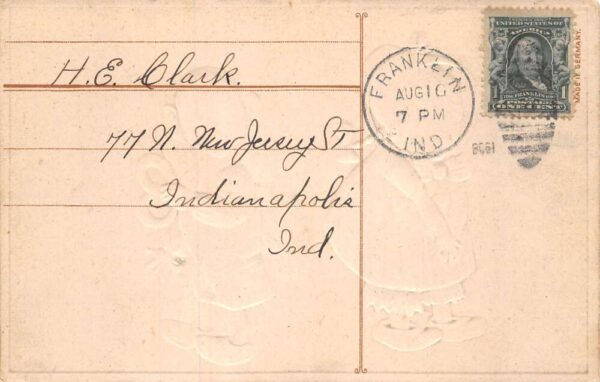 H. E. Clark.
77 N. New Jersey St
Indianapolis
Ind.
FRANKLIN
AUG 10
7 PM
IND.
1908
UNITED STATES OF
AMERICA
1 1
FRANKLIN
POSTAGE
ONE CENT
MADE IN GERMANY.